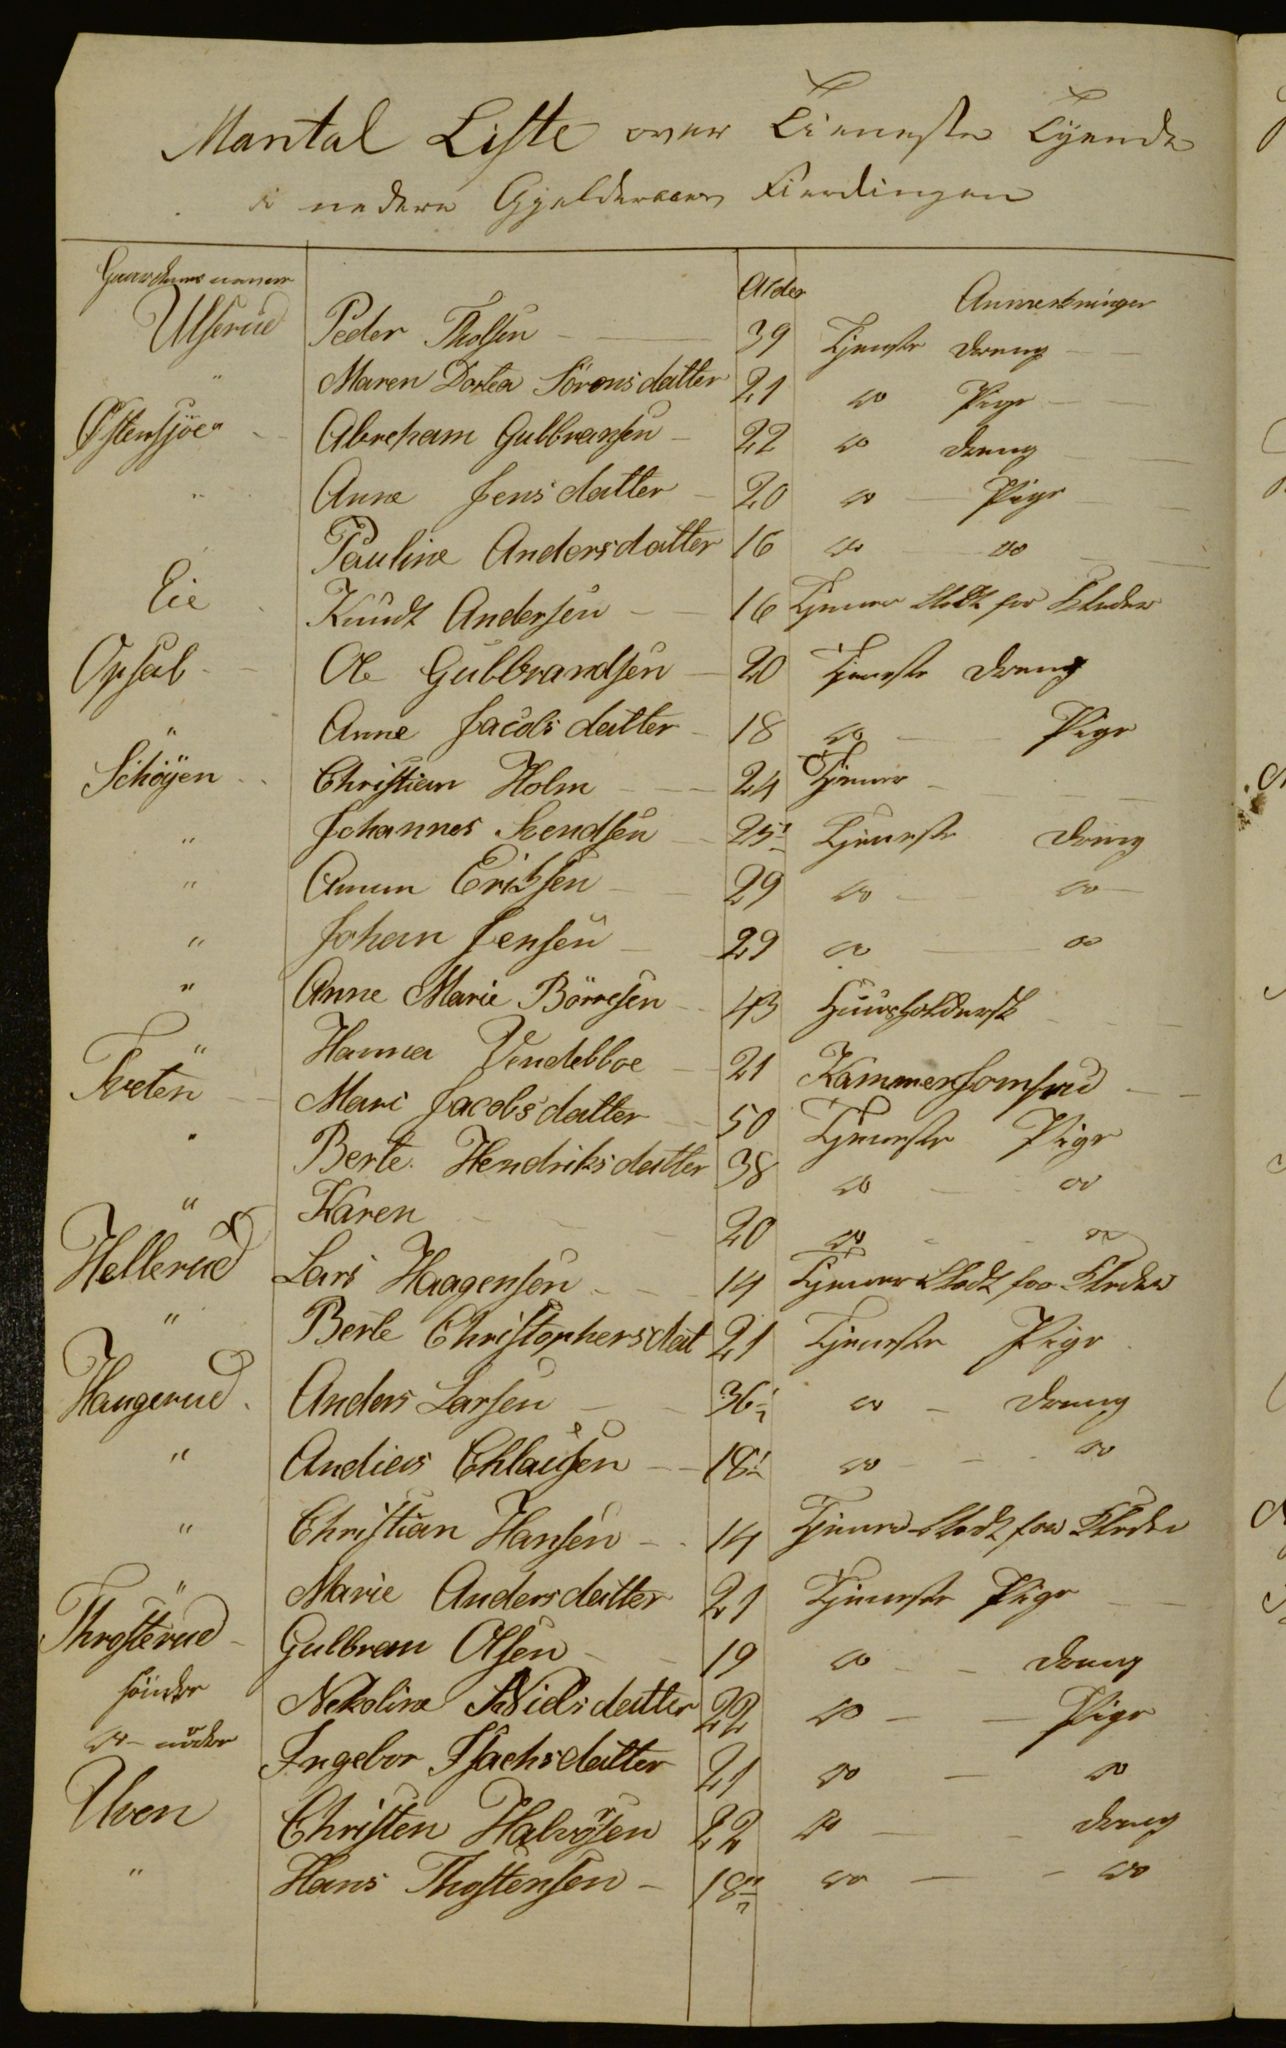 Mantal Liste over Tieneste Tyende
i nedere Fierdingen
Gaardenes navne Alder Anmerkninger
Ulserud Peder Tholsen 39 Tjeneste Dreng
" Maren Dortea Sörensdatter 21 do Pige
Østensjøe Abreham Gulbransen 22 do Dreng
" Anne Jensdatter 20 do Pige
Pauline Andersdatter 16 do do
Eie Knudt Andersen 16 Tjener blodt for Kleder
Opsal Ole Gulbrandsen 20 Tjeneste Dreng
" Anne Jacobsdatter 18 do Pige
Schöyen Christian Holm 24 Tjener
" Johannes Svendsen 25 Tjeneste Dreng
" Amun Eriksen 29 do do
" Johan Jensen 29 do do
" Anne Marie Börresen 43 Huusholderske
" Hanna Vendelboe 21 Kammerjomfrud
Tveten Mari Jacobsdatter 50 Tjeneste Pige
" Berte Hendriksdatter 38 do do
" Karen 20 do do
Hellerud Lars Haagensen 14 Tjener blodt for Kleder
" Berte Christophersdat 21 Tjeneste Pige
Haugerud Anders Larsen 36 do Dreng
" Andreas Chlausen 18 do do
" Christian Hansen 14 Tjener blodt for Kleder
" Marie Andersdatter 21 Tjeneste Pige
Throsterud Gulbran Olsen 19 do Dreng
sönder Nekoline Nielsdatter 22 do Pige
do nöder Ingebor Isachsdatter 21 do do
Ulven Christen Halvorsen 22 do Dreng
" Hans Thostensen 18 do do